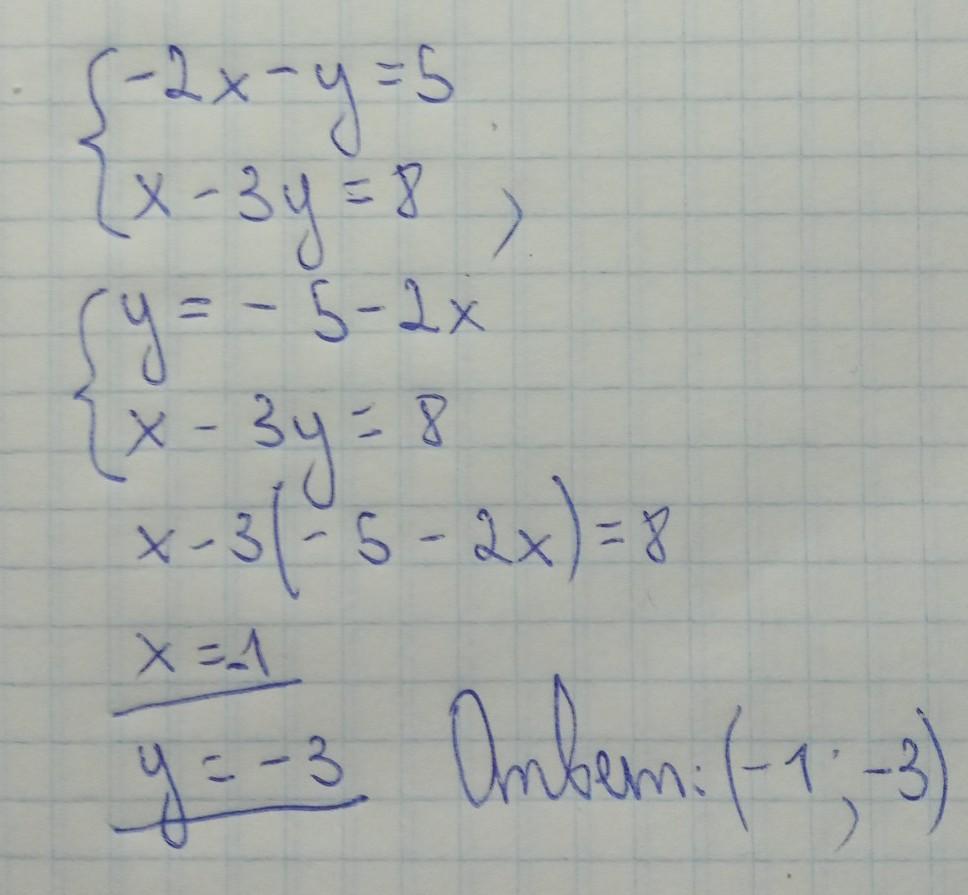 {-2x-y=5
x-3y=8,
{y=-5-2x
x-3y=8
x-3(-5-2x)=8
x=-1
y=-3 Ответ: (-1;-3)